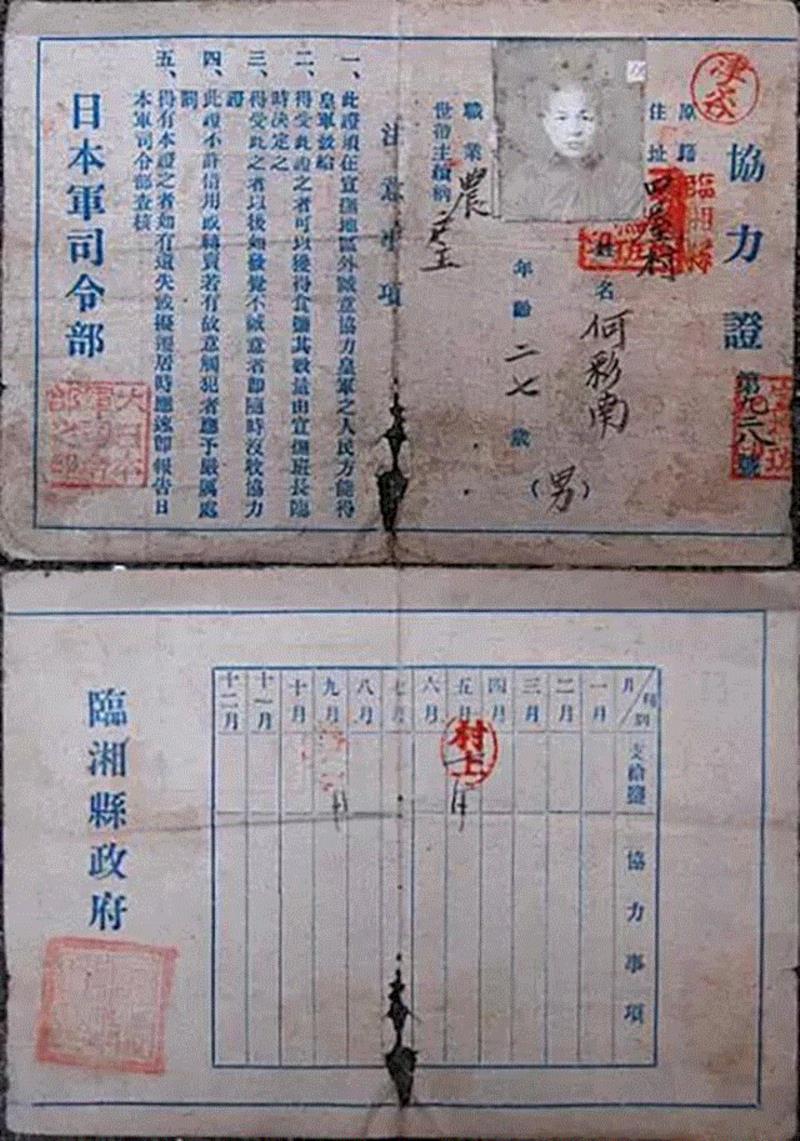 協力證
第九二八號
原籍 臨湘縣
住址
姓名 何彩南
(男)
年齡 二七 歲
職業 農
世帶主續柄 戶主
注意事項
一、此證須在宣傳地區外誠意協力皇軍之人民方能得
皇軍發給
二、得受此證之者可以獲得食鹽其數量由宣傳班長臨
時決定之
三、得受此之者以後如發覺不誠意者即隨時沒收協力
證
四、此證不許借用或轉賣若有故意觸犯者應予嚴厲處
罰
五、得有本證之者如有遺失或擬遷居時應速即報告日
本軍司令部查核
日本軍司令部
月 種別
支給鹽
協力事項
一月
二月
三月
四月
五月
六月
七月
八月
九月
十月
十一月
十二月
村上
臨湘縣政府